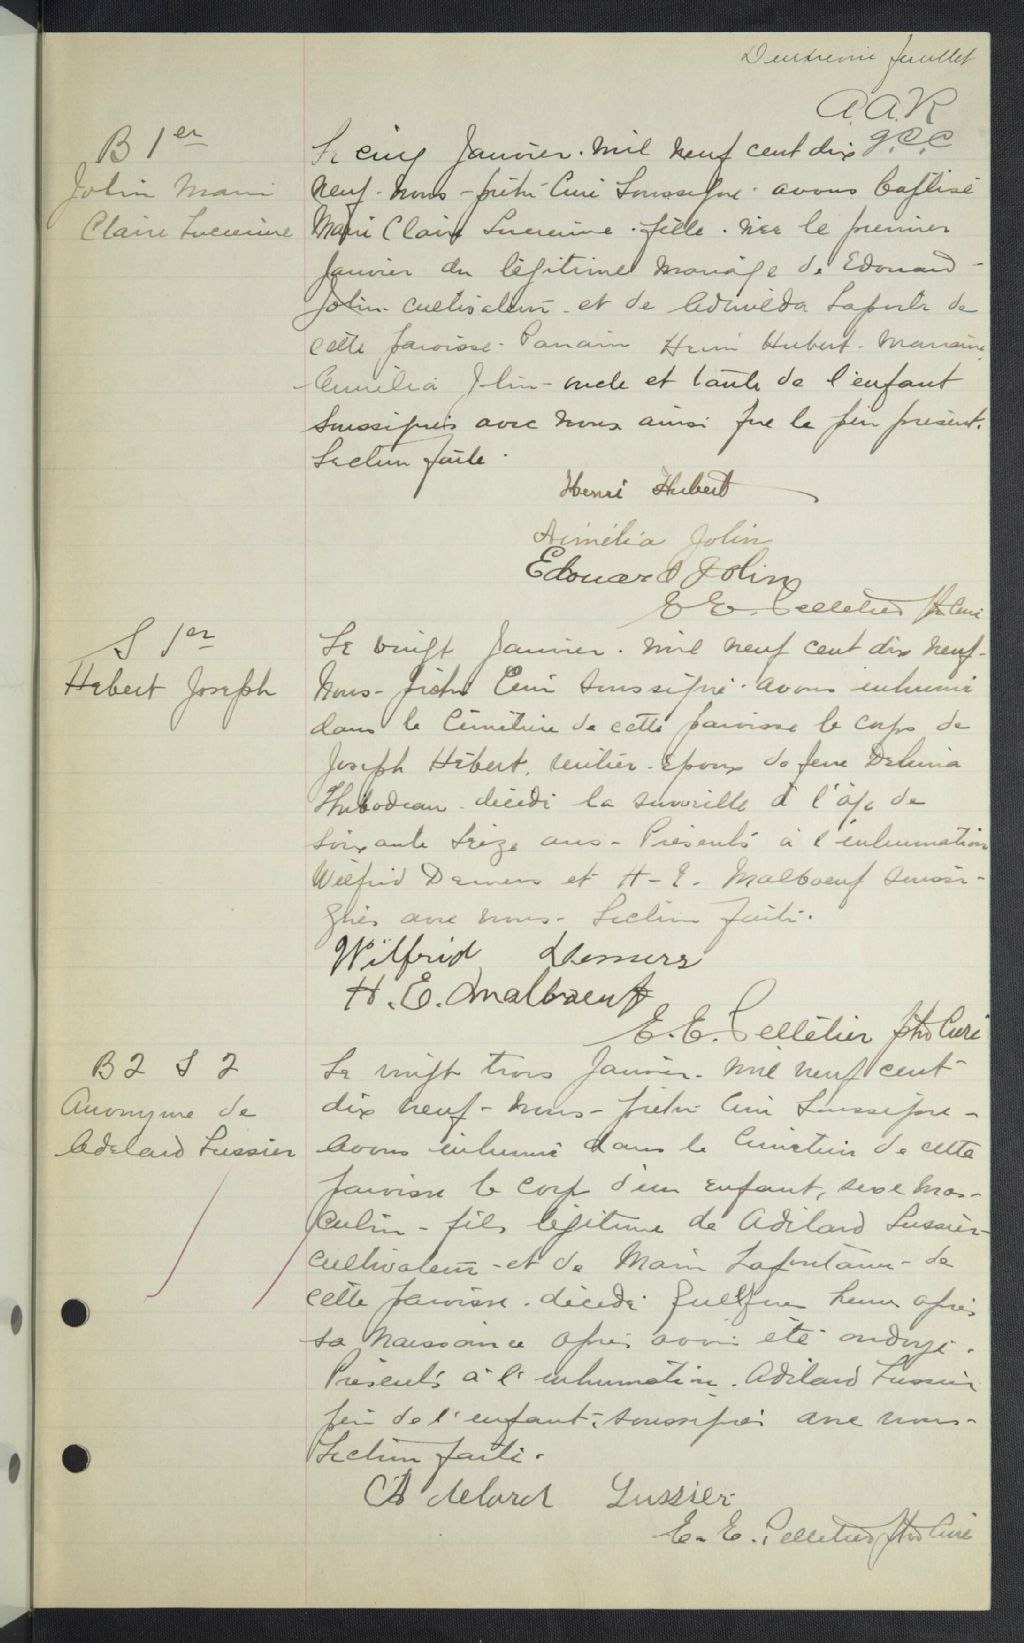 Deuxième feuillet
A.A.R
J.C.C
B 1er
Jolin Marie
Claire Lucienne
Le cinq Janvier. mil neuf cent dix
neuf. nous - prêtre Curé Soussigné. avons baptisé
Marie Claire Lucienne. fille. née le premier
Janvier du légitime mariage de Edouard -
Jolin - cultivateur - et de Admilda Laporte de
cette paroisse. Parrain Henri Hubert. Marraine
Aimélia Jolin - oncle et tante de l'enfant
soussignés avec nous ainsi que le père présent.
Lecture faite.
Henri Hubert
Aimélia Jolin
Edouard Jolin
E E. Pelletier Ptre Curé
S 1er
Hébert Joseph
Le vingt Janvier. mil neuf cent dix neuf -
Nous - prêtre Curé soussigné. avons inhumé
dans le cimetière de cette paroisse le corps de
Joseph Hébert. rentier. époux de feue Delima
Thibodeau. décédé la surveille à l'âge de
soixante seize ans - Présents à l'inhumation
Wilfrid Demers et H - E. Malboeuf soussi -
gnés avec nous - Lecture faite.
Wilfrid Demers
H. E. Malboeuf
E. E. Pelletier Ptre Curé
B 2 S 2
Anonyme de
Adelard Lussier
Le vingt trois Janvier. mil neuf cent
dix neuf - nous - prêtre Curé Soussigné -
avons inhumé dans le Cimetière de cette
paroisse le corps d'un enfant, sexe mas -
culin - fils légitime de Adélard Lussier -
cultivateur - et de Marie Lafontaine - de
cette paroisse. décédé quelques heures après
sa naissance après avoir été ondoyé.
Présents à l'inhumation. Adélard Lussier
père de l'enfant, soussigné avec nous -
Lecture faite.
Adelard Lussier
E. E. Pelletier Ptre Curé